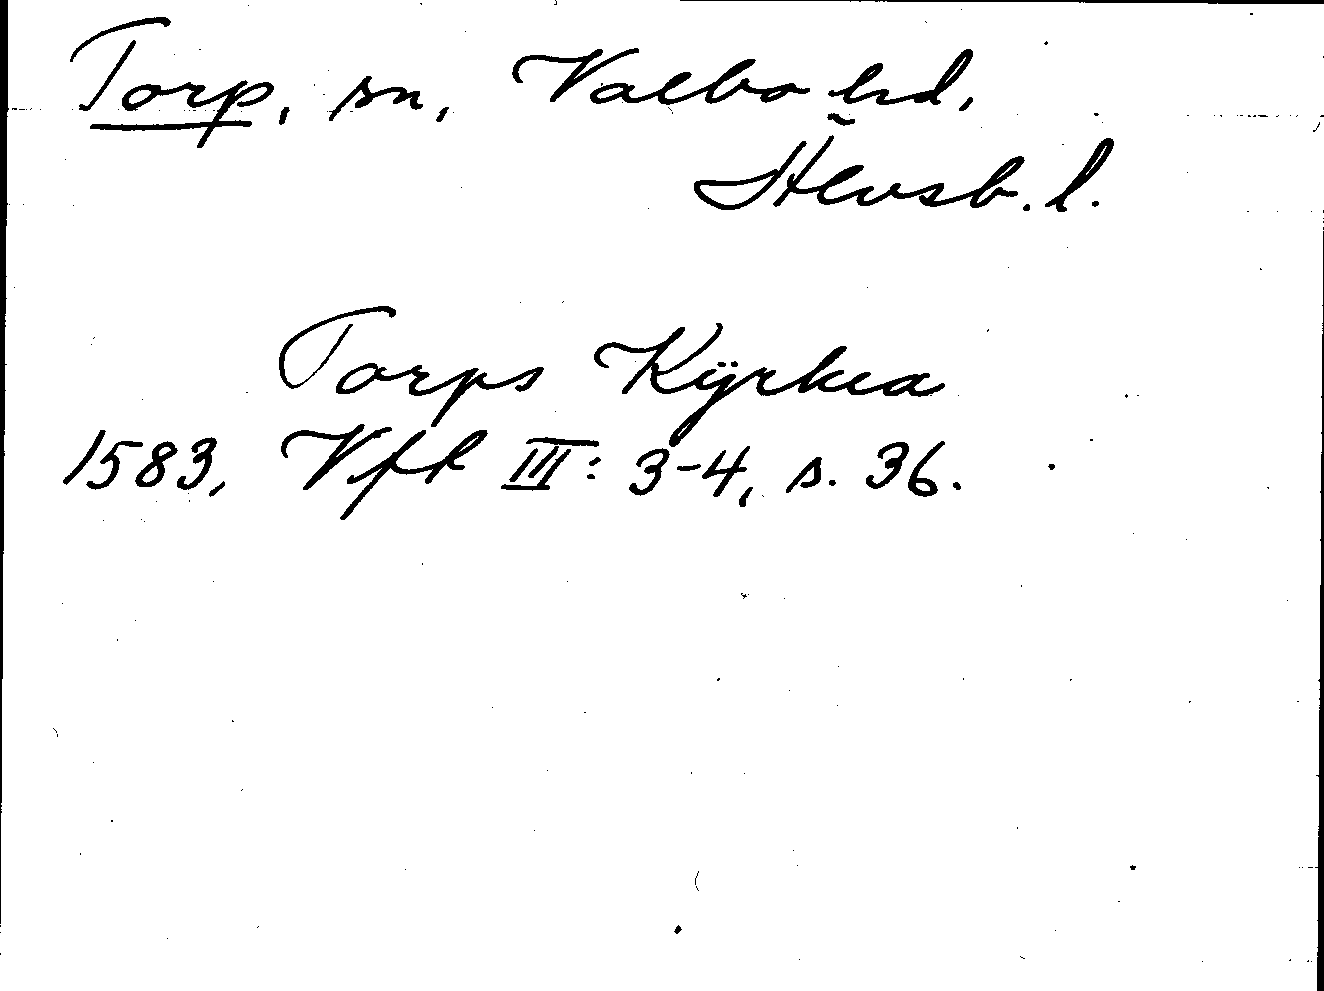 Torp, sn, Valbo hd,
Älvsb. l.
Torps Kÿrkia
1583, Vfk III: 3-4, s. 36.